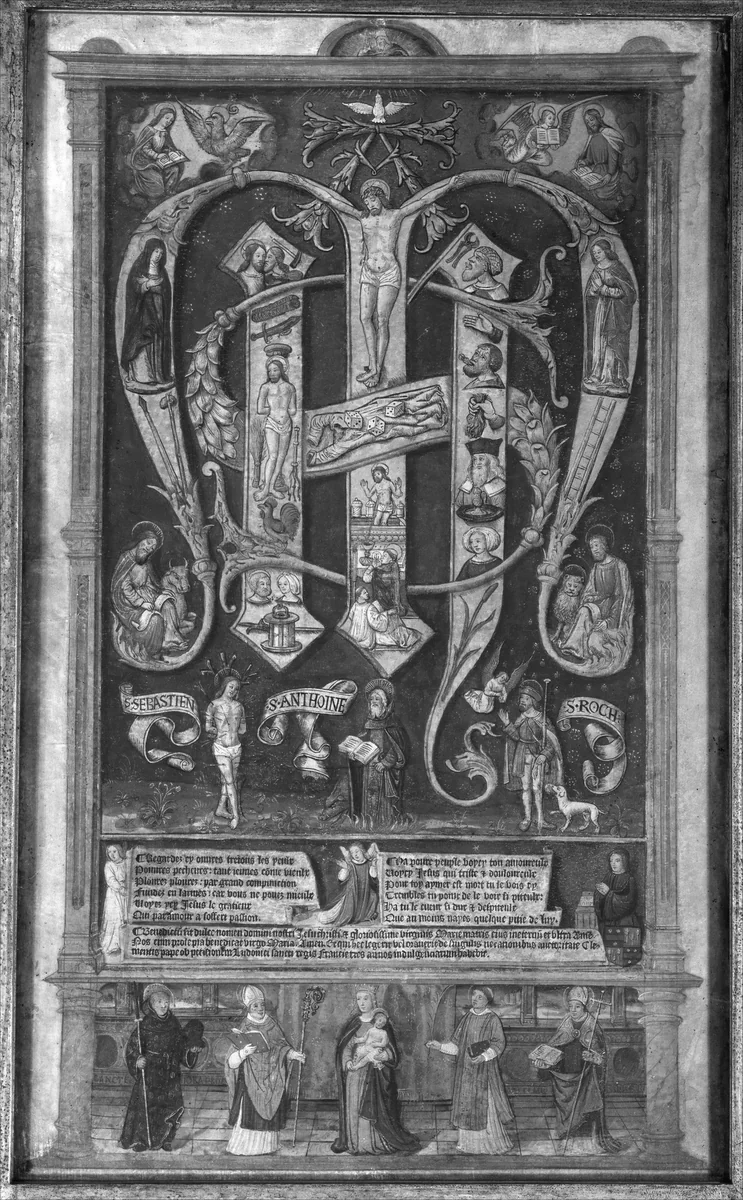 S·SEBASTIEN
S·ANTHOINE
S·ROCH·
Regardez cy ouures tretous les yeulx
Pouures pecheurs: tant ieunes cõme vieulx
Plourez ploures: par grand compunction
Fundez en larmes: car vous ne pouez mieulx
Voyez icy Jesus le gracieux
Qui par amour a soffert passion.
Ma poure peuple voyez ton amoureulx
Voycy Jesus qui triste & douloureulx
Pour toy aymer est mort en le bois cy
Trembles en poine de le voir si piteulx:
Ha tu le cueur si dur & despiteulx
Que au moins nayes quelque pitie de luy.
Benedictũ sit dulce nomen domini nostri Jesu christi & gloriosissime virginis Marie matris eius in eternũ et vltra Amẽ.
Nos cum prole pia benedicat virgo Maria. Amen. Sequi hec legerit vel
mentis pape ob petitionem Ludouici sancti regis Francie tres annos indulgentiarum habebit.